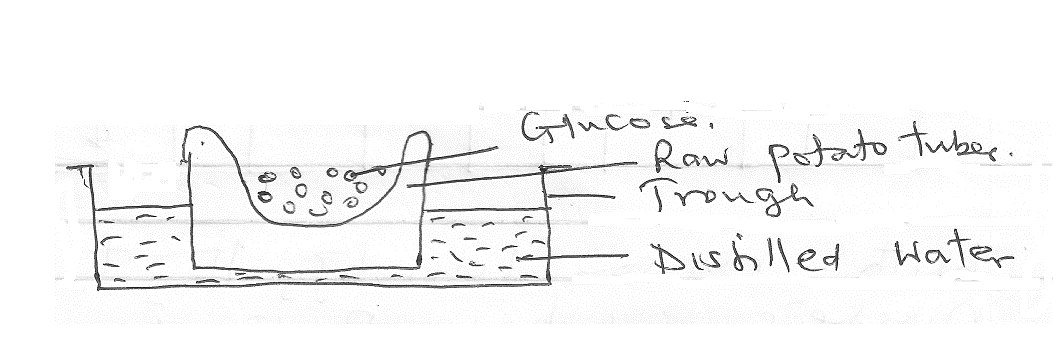 Glucose.
Raw potato tuber.
Trough
Distilled water